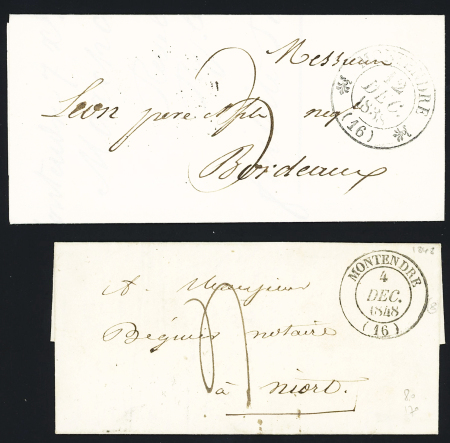 Messieurs
Leon pere et fils neg
Bordeaux
MONTENDRE
12
DEC.
1838
(16)
A Monsieur
Béguier notaire
à Niort.
MONTENDRE
4
DEC.
1848
(16)